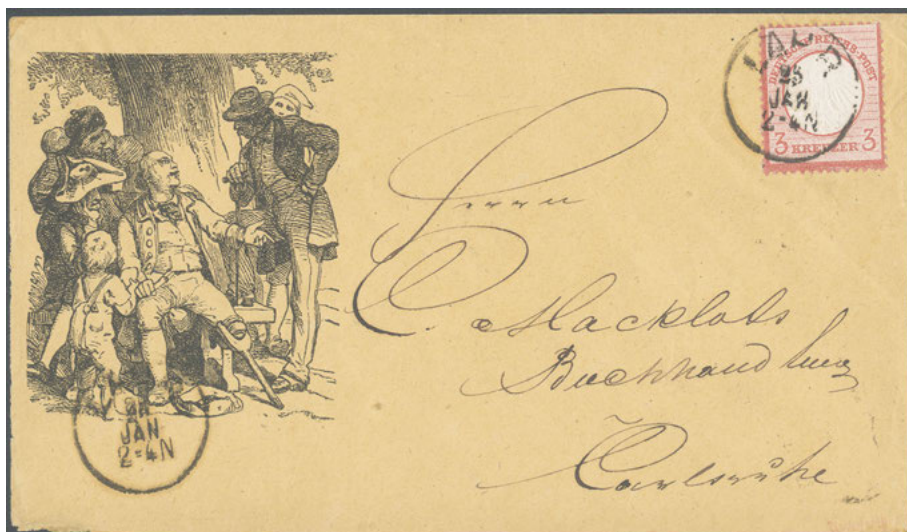 LAHR
25
JAN
2-4N
DEUTSCHE REICHS-POST
3 KREUZER 3
Herrn
C. Macklots
Buchhandlung
Carlsruhe
JAN
2-4N